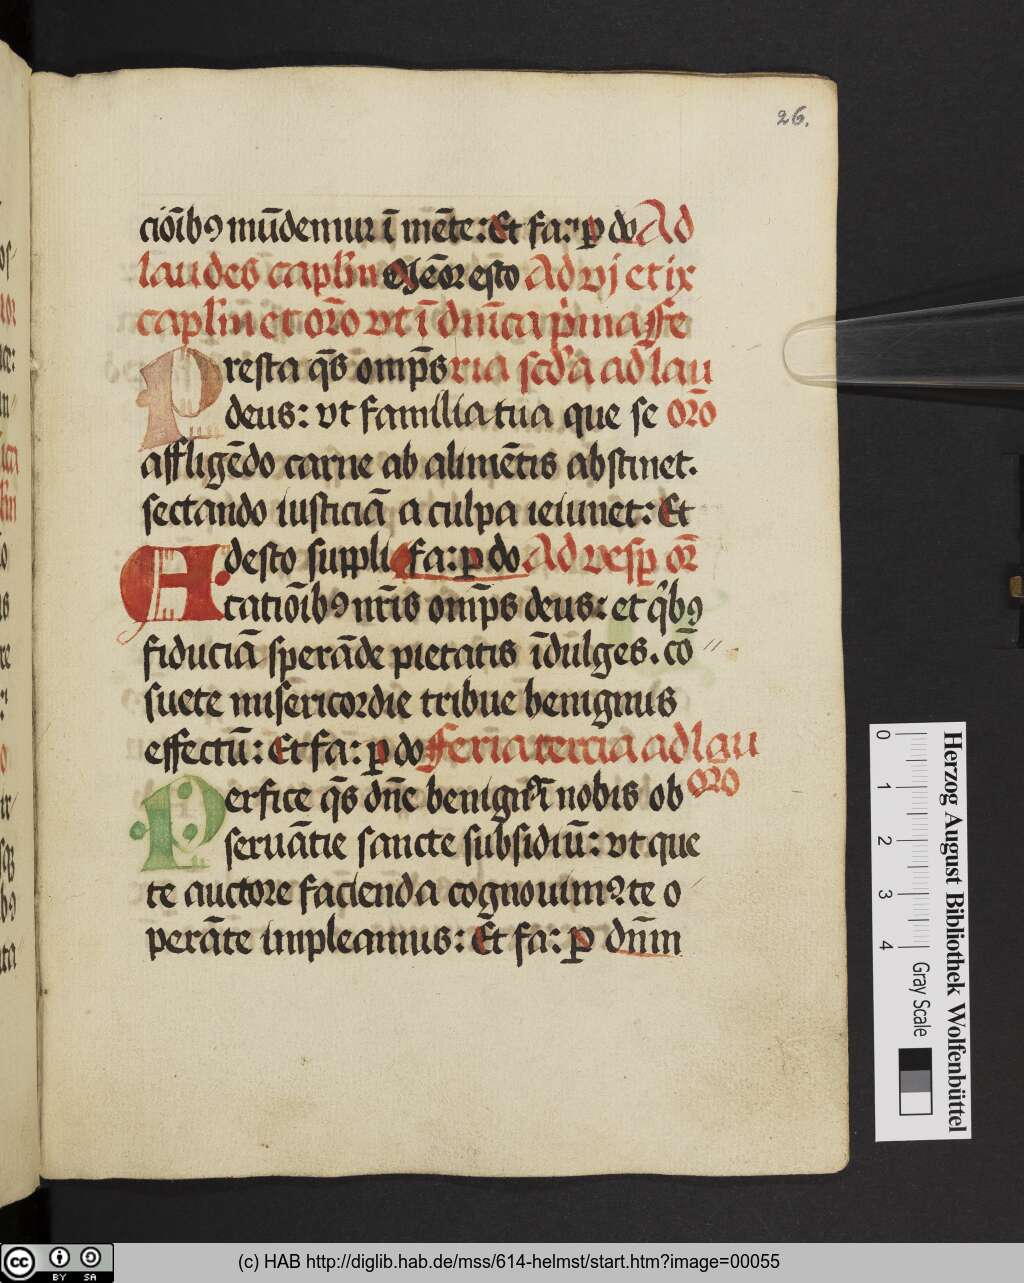 26.
cioīb9 mūdemur ī mēte: Et fa: p do Ad
laudes caplm Mēor esto Ad vj et ix
caplm et oro vt ī dnīca pima Fe
Presta qs omps ria scda ad lau
deus: vt familia tua que se oro
affligēdo carne ab alimētis abstinet.
sectando iusticiā a culpa ieiunet: Et
Adesto suppli fa: p do Ad vesp or
catioīb9 nris omps deus: et qb9
fiduciā sperāde pietatis īdulges. cō
suete misericordie tribue benignus
effectū: Et fa: p do Feria tercia ad lau
Perfice qs dne benignī nobis ob oro
seruātie sancte subsidiū: vt que
te auctore facienda cognouim9 te o
perāte impleamus: Et fa: p dnm
0 1 2 3 4
Gray Scale
Herzog August Bibliothek Wolfenbüttel
cc BY SA
(c) HAB http://diglib.hab.de/mss/614-helmst/start.htm?image=00055